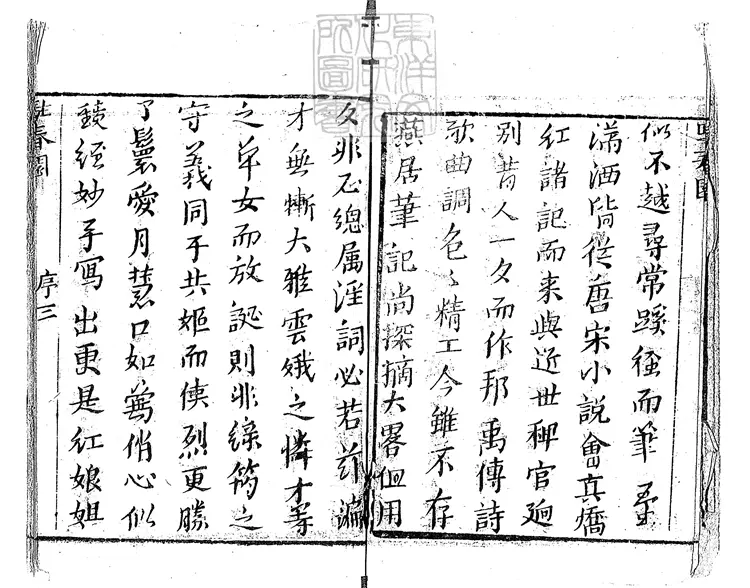 駐春園
似不越尋常蹊徑而筆墨
瀟洒皆從唐宋小說會真嬌
紅諸記而来與近世稗官迥
别昔人一夕而作祁禹傳詩
歌曲調色〻精工今雖不存
燕居筆記尚採摘大畧但用
非總属淫詞必若茲編
才無慚大雅雲娥之憐才等
之卓女而放誕則非綠筠之
守義同乎共姬而俠烈更勝
了鬟愛月慧口如鶯俏心似
妙手寫出更是紅娘姐
駐春園 序三